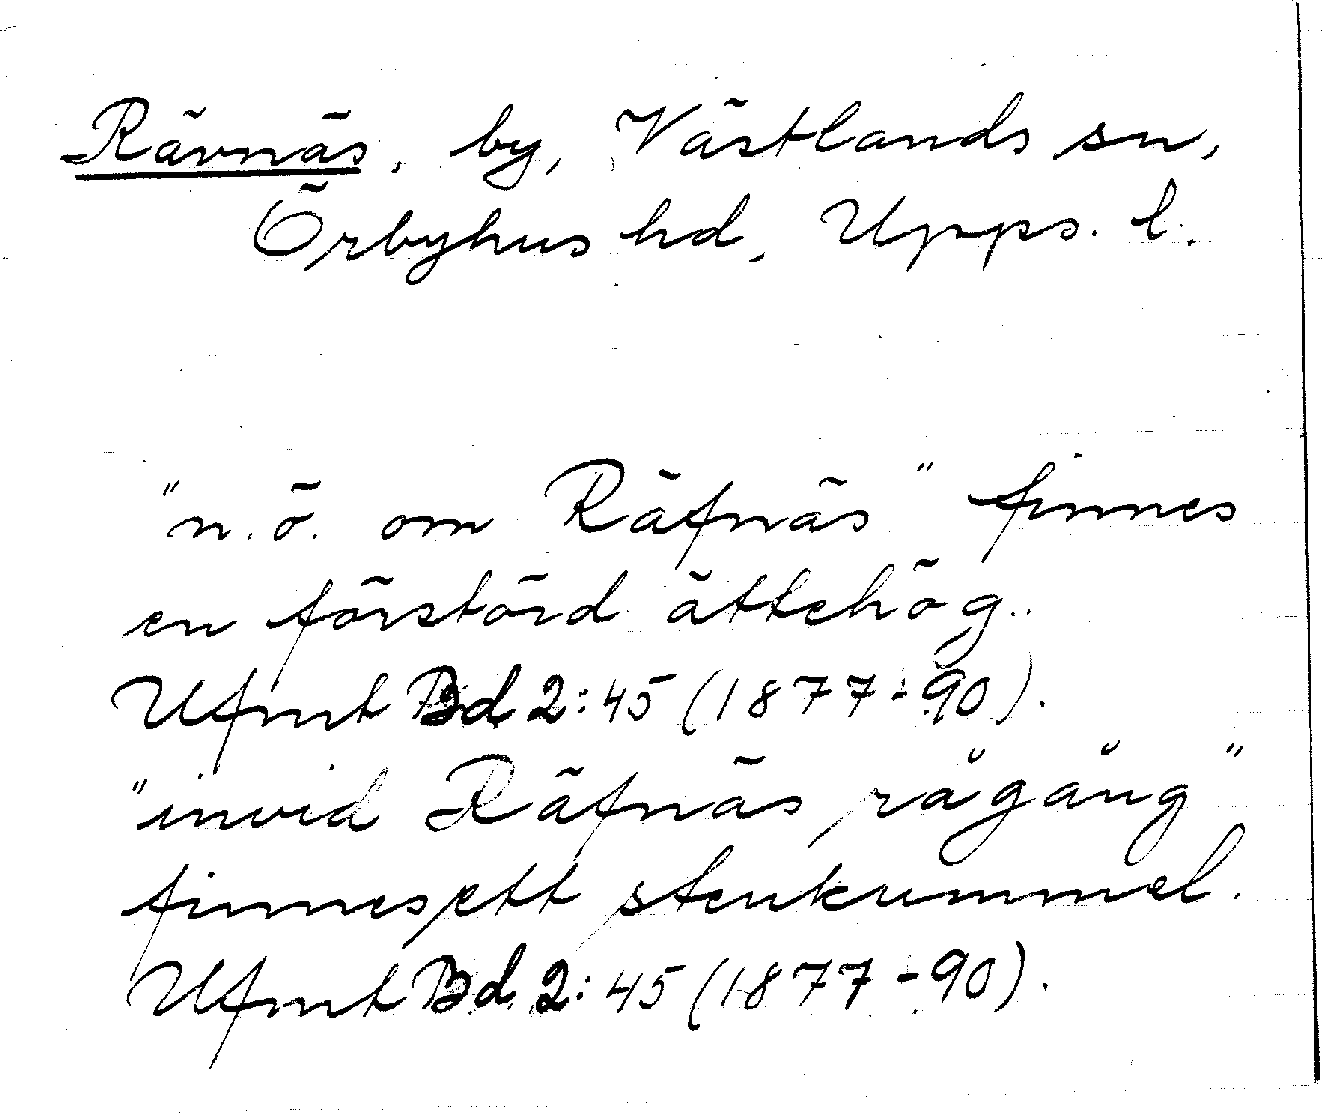 Rävnäs, by, Västlands sn,
Örbyhus hd, Upps. l.
"n.ö. om Räfnäs" finnes
en förstörd ättehög.
Ufmt Bd 2:45 (1877-90).
"invid Räfnäs rågång"
finnes ett stenkummel.
Ufmt Bd 2:45 (1877-90).